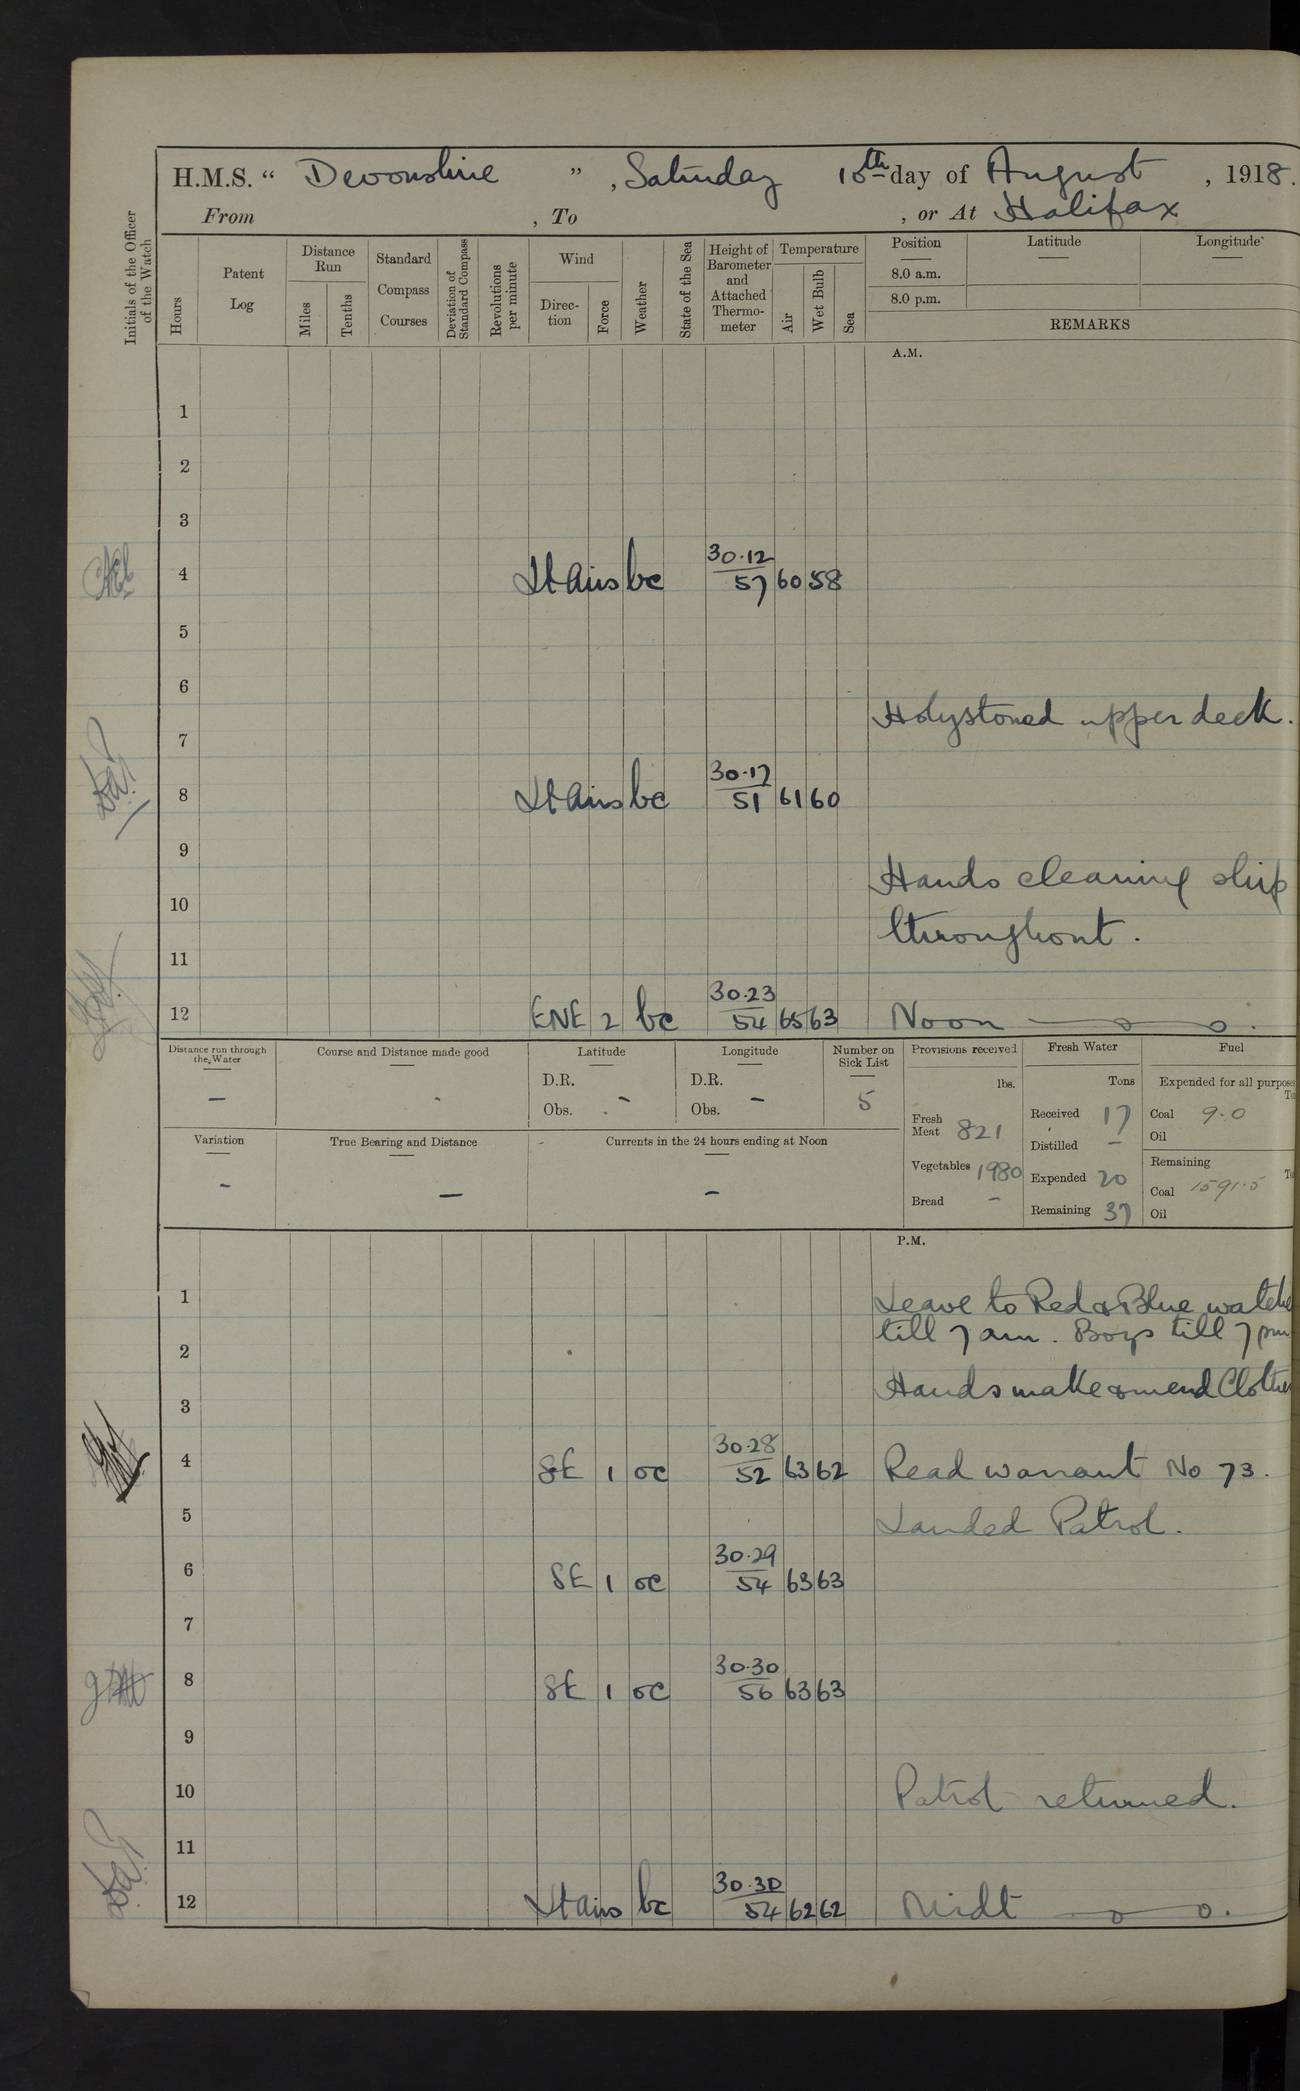 H.M.S. “ Devonshire ” , Saturday 10th day of August , 1918.
From , To , or At Halifax
Initials of the Officer of the Watch
Hours
Patent Log
Distance Run
Miles
Tenths
Standard Compass Courses
Deviation of Standard Compass
Revolutions per minute
Wind
Direc-tion
Force
Weather
State of the Sea
Height of Barometer and Attached Thermo-meter
Temperature
Air
Wet Bulb
Sea
Position Latitude Longitude
8.0 a.m.
8.0 p.m.
REMARKS
A.M.
1
2
3
4 Lt airs bc 30.12 57 60 58
5
6
Holystoned upper deck.
7
8 Lt airs bc 30.17 51 61 60
9
Hands cleaning ship
10
throughout.
11
12 ENE 2 bc 30.23 54 65 63 Noon
Distance run through the Water
–
Course and Distance made good
Latitude
D.R.
Obs. –
Longitude
D.R.
Obs. –
Number on Sick List
5
Provisions received
lbs.
Fresh Meat 821
Vegetables 1980
Bread –
Fresh Water
Tons
Received 17
Distilled –
Expended 20
Remaining 37
Fuel
Expended for all purpose
Coal 9.0
Oil
Remaining
Coal 1591.5
Oil
Variation
–
True Bearing and Distance
–
Currents in the 24 hours ending at Noon
–
P.M.
1 Leave to Red & Blue watche
till 7 am. Boys till 7 pm
2
Hands make & mend Clothes
3
4 SE 1 oc 30.28 52 63 62 Read warrant No 73.
5 Landed Patrol.
6 SE 1 oc 30.29 54 63 63
7
8 SE 1 oc 30.30 56 63 63
9
10 Patrol returned.
11
12 Lt airs bc 30.30 54 62 62 Midt